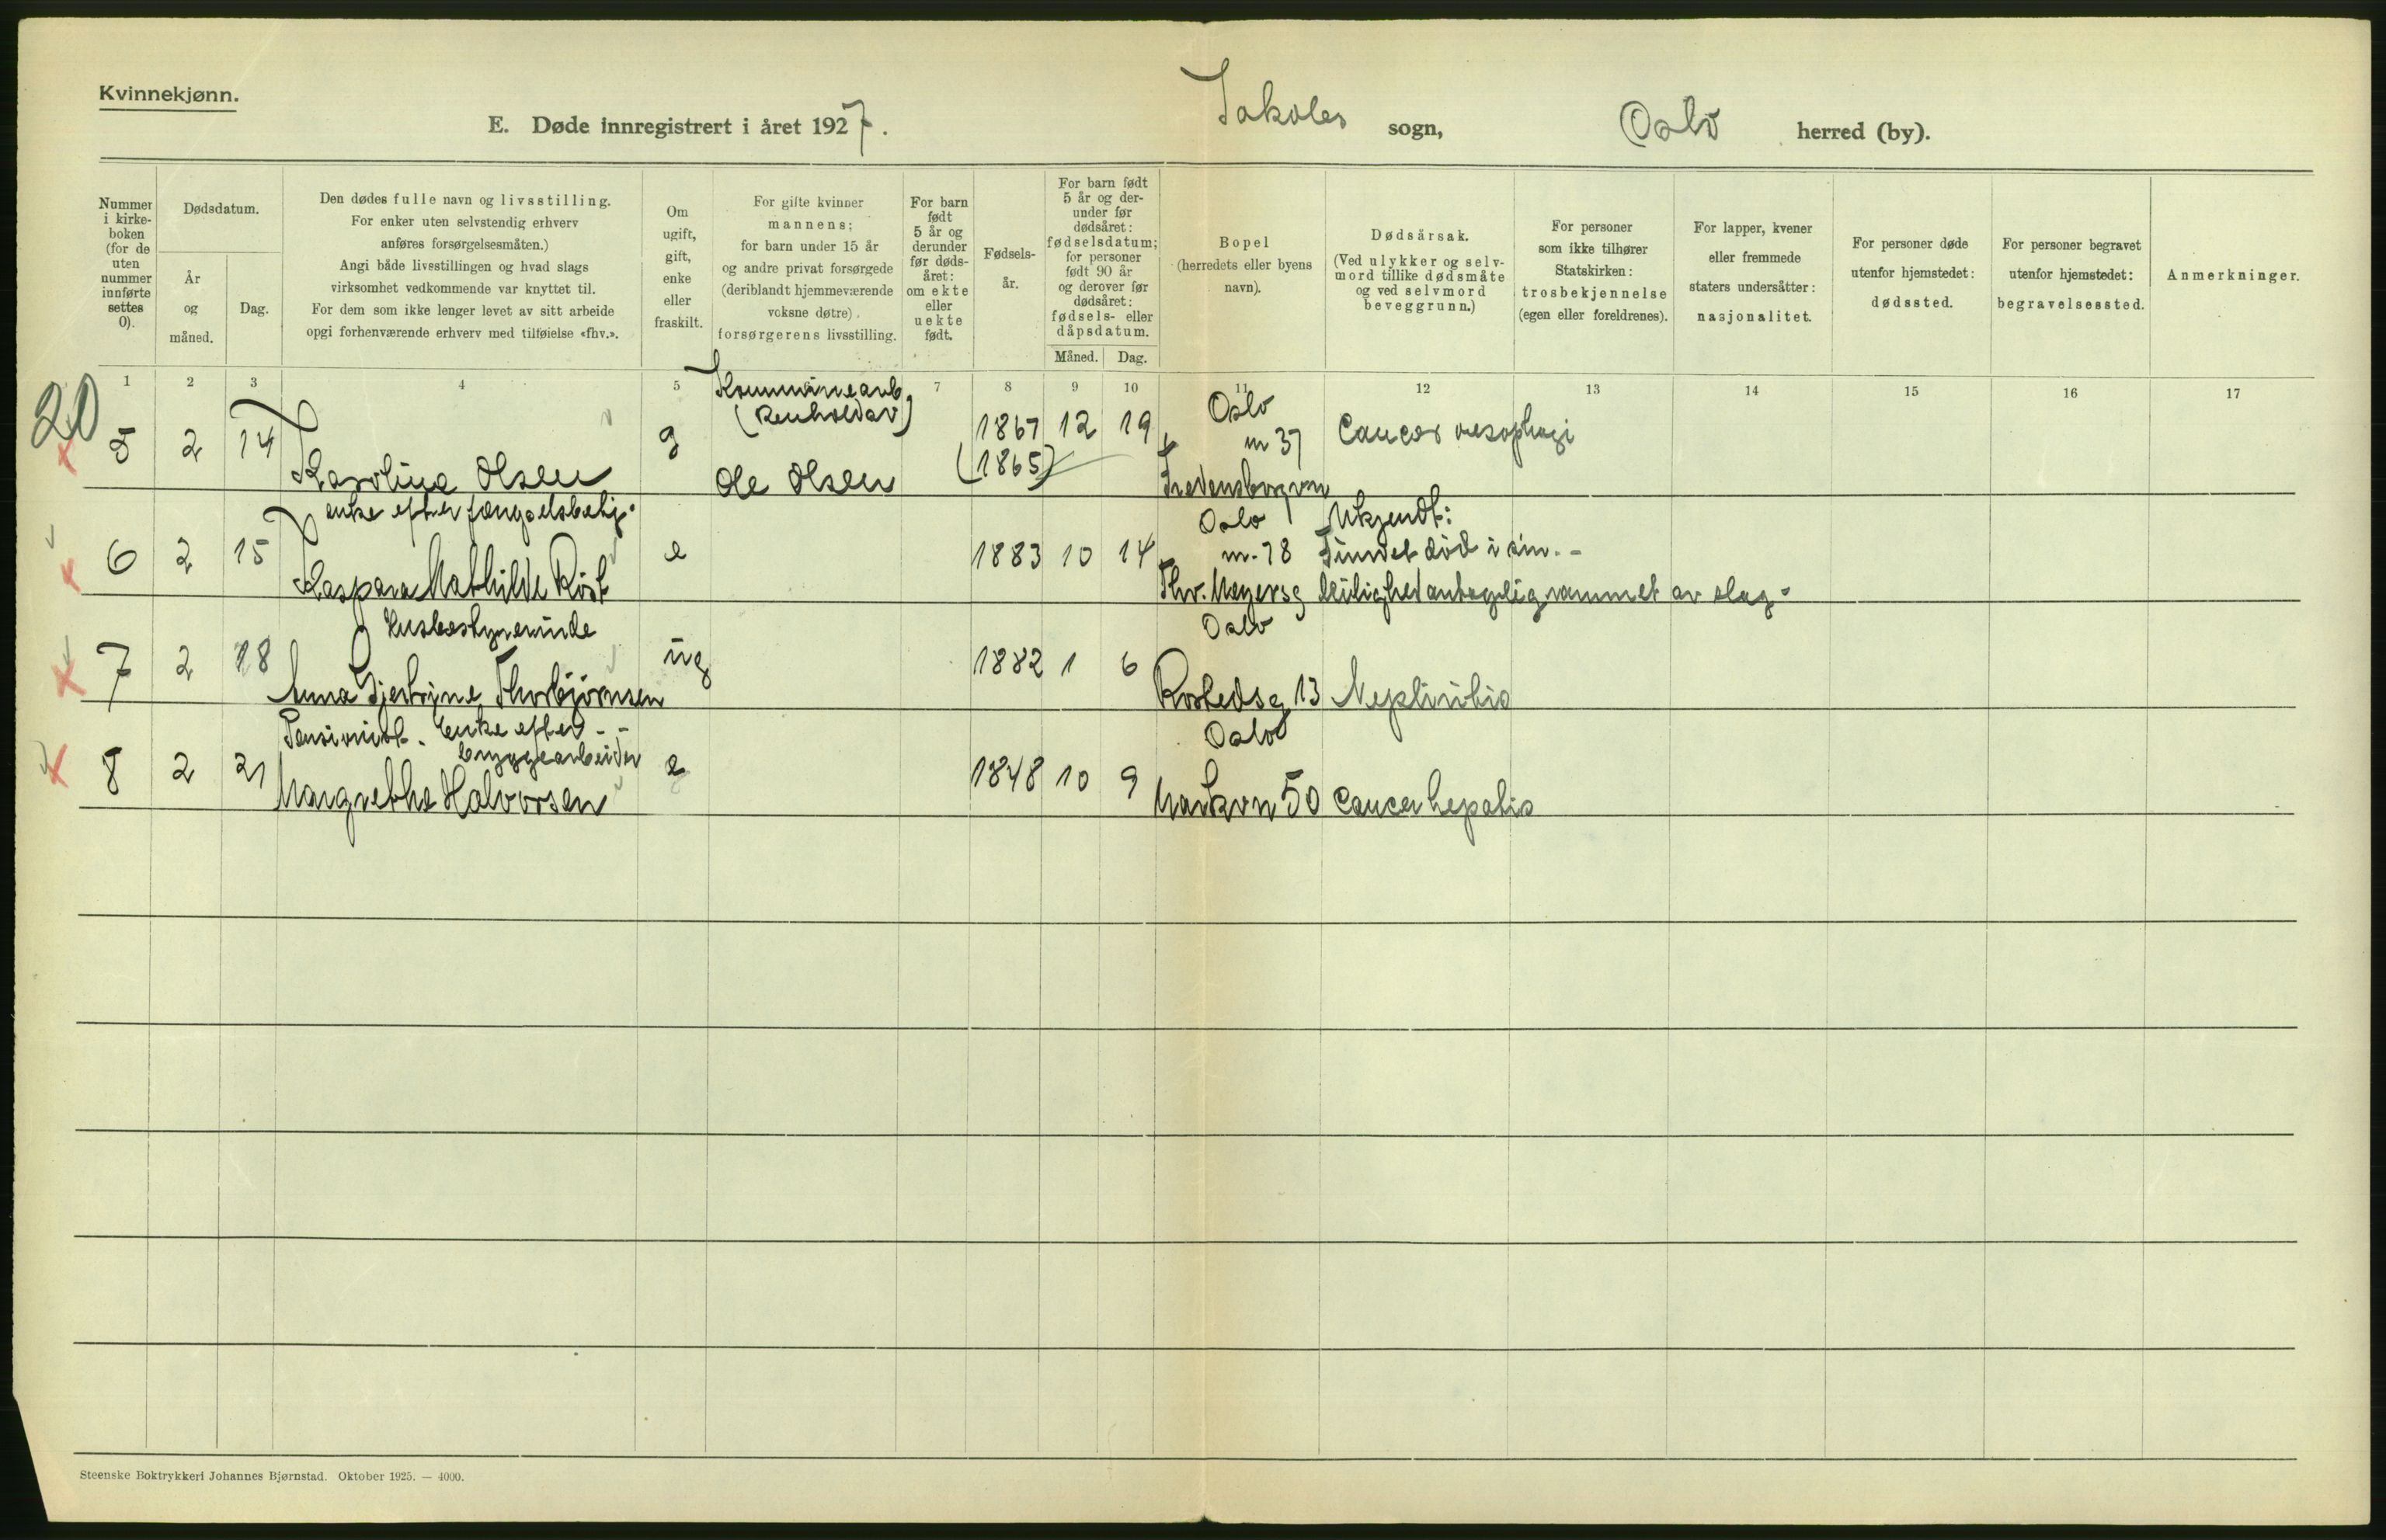 Kvinnekjønn.
E. Døde innregistrert i året 1927. Jakobs sogn, Oslo herred (by).
Nummer i kirke-boken (for de uten nummer innførte settes 0).
Dødsdatum.
År og måned.
Dag.
Den dødes fulle navn og livsstilling.
For enker uten selvstendig erhverv
anføres forsørgelsesmåten.)
Angi både livsstillingen og hvad slags
virksomhet vedkommende var knyttet til.
For dem som ikke lenger levet av sitt arbeide
opgi forhenværende erhverv med tilføielse «fhv.».
Om ugift, gift, enke eller fraskilt.
For gifte kvinner
mannens;
for barn under 15 år
og andre privat forsørgede
(deriblandt hjemmeværende
voksne døtre)
forsørgerens livsstilling.
For barn født 5 år og derunder før døds-året: om ekte eller uekte født.
Fødsels-år.
For barn født 5 år og der-under før dødsåret: fødselsdatum; for personer født 90 år og derover før dødsåret: fødsels- eller dåpsdatum.
Måned. Dag.
Bopel
(herredets eller byens
navn).
Dødsårsak.
(Ved ulykker og selv-
mord tillike dødsmåte
og ved selvmord
beveggrunn.)
For personer
som ikke tilhører
Statskirken:
trosbekjennelse
(egen eller foreldrenes).
For lapper, kvener
eller fremmede
staters undersåtter:
nasjonalitet.
For personer døde
utenfor hjemstedet:
dødssted.
For personer begravet
utenfor hjemstedet:
begravelsessted.
Anmerkninger.
1 2 3 4 5 7 8 9 10 11 12 13 14 15 16 17
20
Kommunearb.
(Renholdsv)
Oslo
5 2 14 g 1867 12 19 nr 37 Cancer oesophagi
(1865)
Karoline Olsen Ole Olsen Fredensborgvn
enke efter fængselsbetj. Oslo Ukjendt:
6 2 15 e 1883 10 14 nr. 78 Fundet død i sin. -
Kaspara Mathilde Röst Thv. Meyersg leilighet antagelig rammet av slag -
Husbestyrerinde Oslo
7 2 18 ug 1882 1 6
Anna Gjertrine Thorbjørnsen Rostedsg 13 Nephritis
Pensionist. Enke efter - - Oslo
bryggearbeider
8 2 21 e 1848 10 9
Margrethe Halvorsen Markvn 50 Cancer hepatis
Steenske Boktrykkeri Johannes Bjørnstad. Oktober 1925. — 4000.